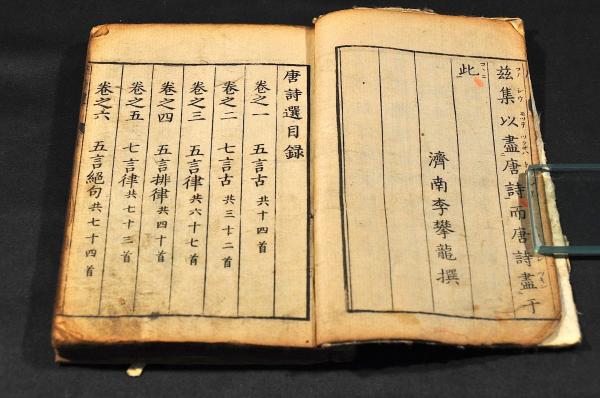 茲集以盡唐詩而唐詩盡于
此
濟南李攀龍撰
唐詩選目録
卷之一 五言古共十四首
卷之二 七言古共三十二首
卷之三 五言律共六十七首
卷之四 五言排律共四十首
卷之五 七言律共七十三首
卷之六 五言絕句共七十四首